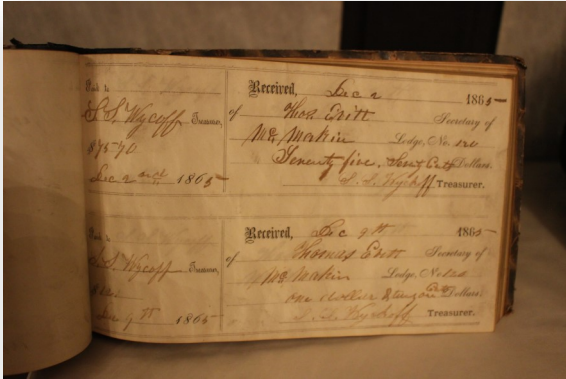 Paid to
S. S. Wycoff Treasurer,
$75 70
Dec 2nd, 1865
Received, Dec 2 1865
of Thos. Evitt Secretary of
Mc Makin Lodge, No. 120
Seventy five, Dollars.
S. S. Wyckoff Treasurer.
Paid to
S. S. Wycoff Treasurer,
Dec 9th 1865
Received, Dec 9th 1865
of Thomas Evitt Secretary of
Mc Makin Lodge, No. 120
one dollar & Dollars.
S. S. Wyckoff Treasurer.